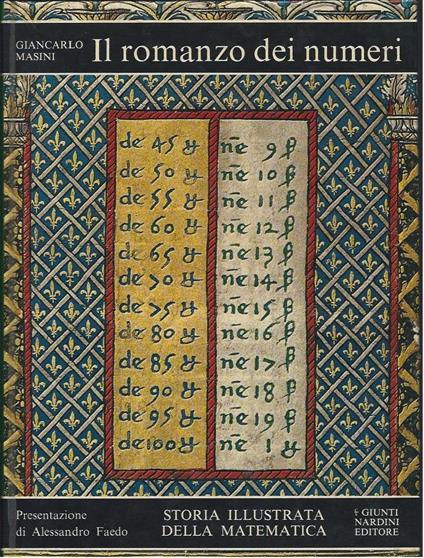 GIANCARLO
MASINI
Il romanzo dei numeri
de 45 nē 9
de 50 nē 10
de 55 nē 11
de 60 nē 12
de 65 nē 13
de 70 nē 14
de 75 nē 15
de 80 nē 16
de 85 nē 17
de 90 nē 18
de 95 nē 19
de 100 nē 1
Presentazione
di Alessandro Faedo
STORIA ILLUSTRATA
DELLA MATEMATICA
GIUNTI
NARDINI
EDITORE